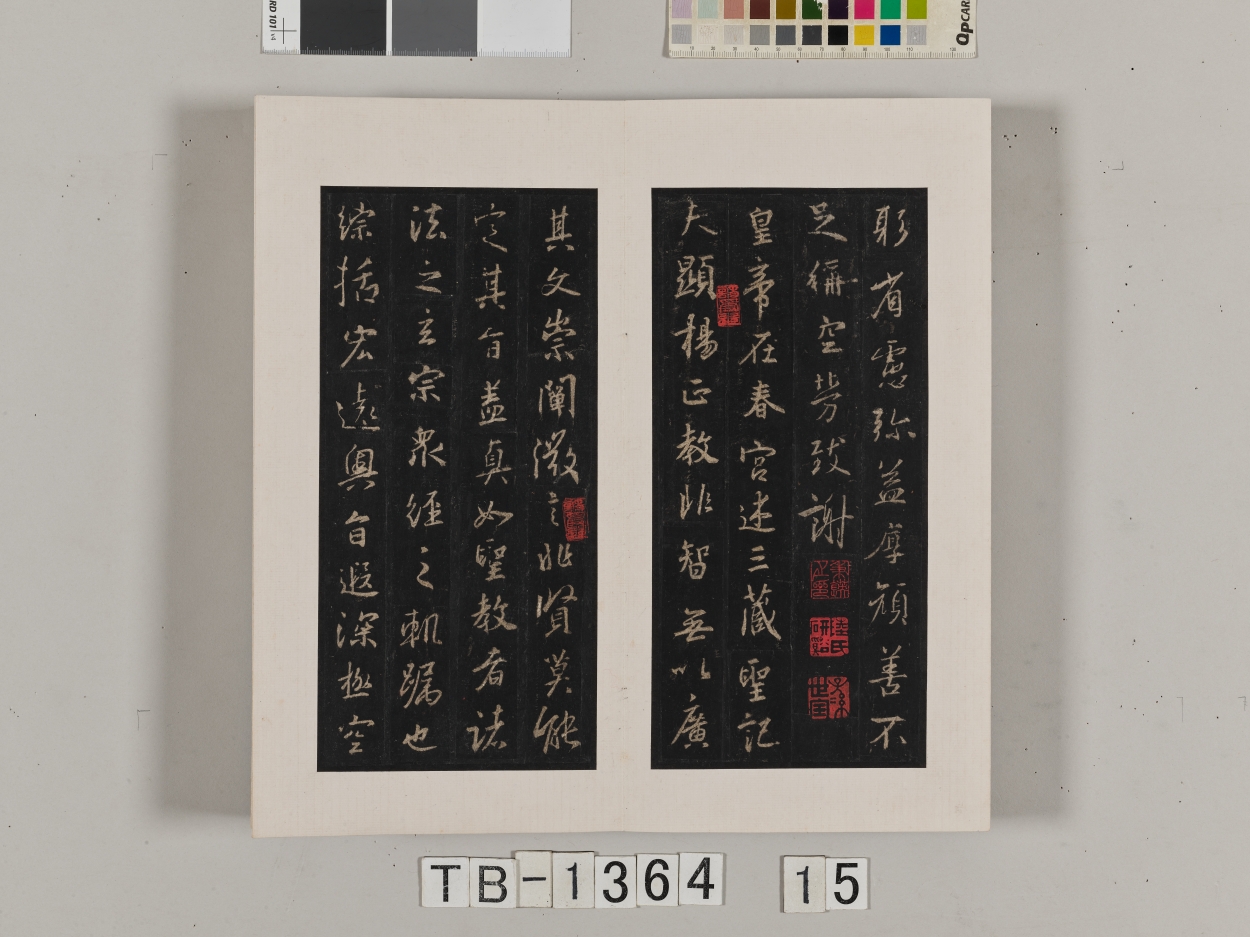 躬省慮弥益厚顔善不
足稱空勞致謝
皇帝在春宮述三藏聖記
夫顯揚正教非智無以廣
其文崇闡微言非賢莫能
定其旨盖真如聖教者諸
法之玄宗衆經之軌躅也
綜括宏遠奥旨遐深極空
TB-1364 15